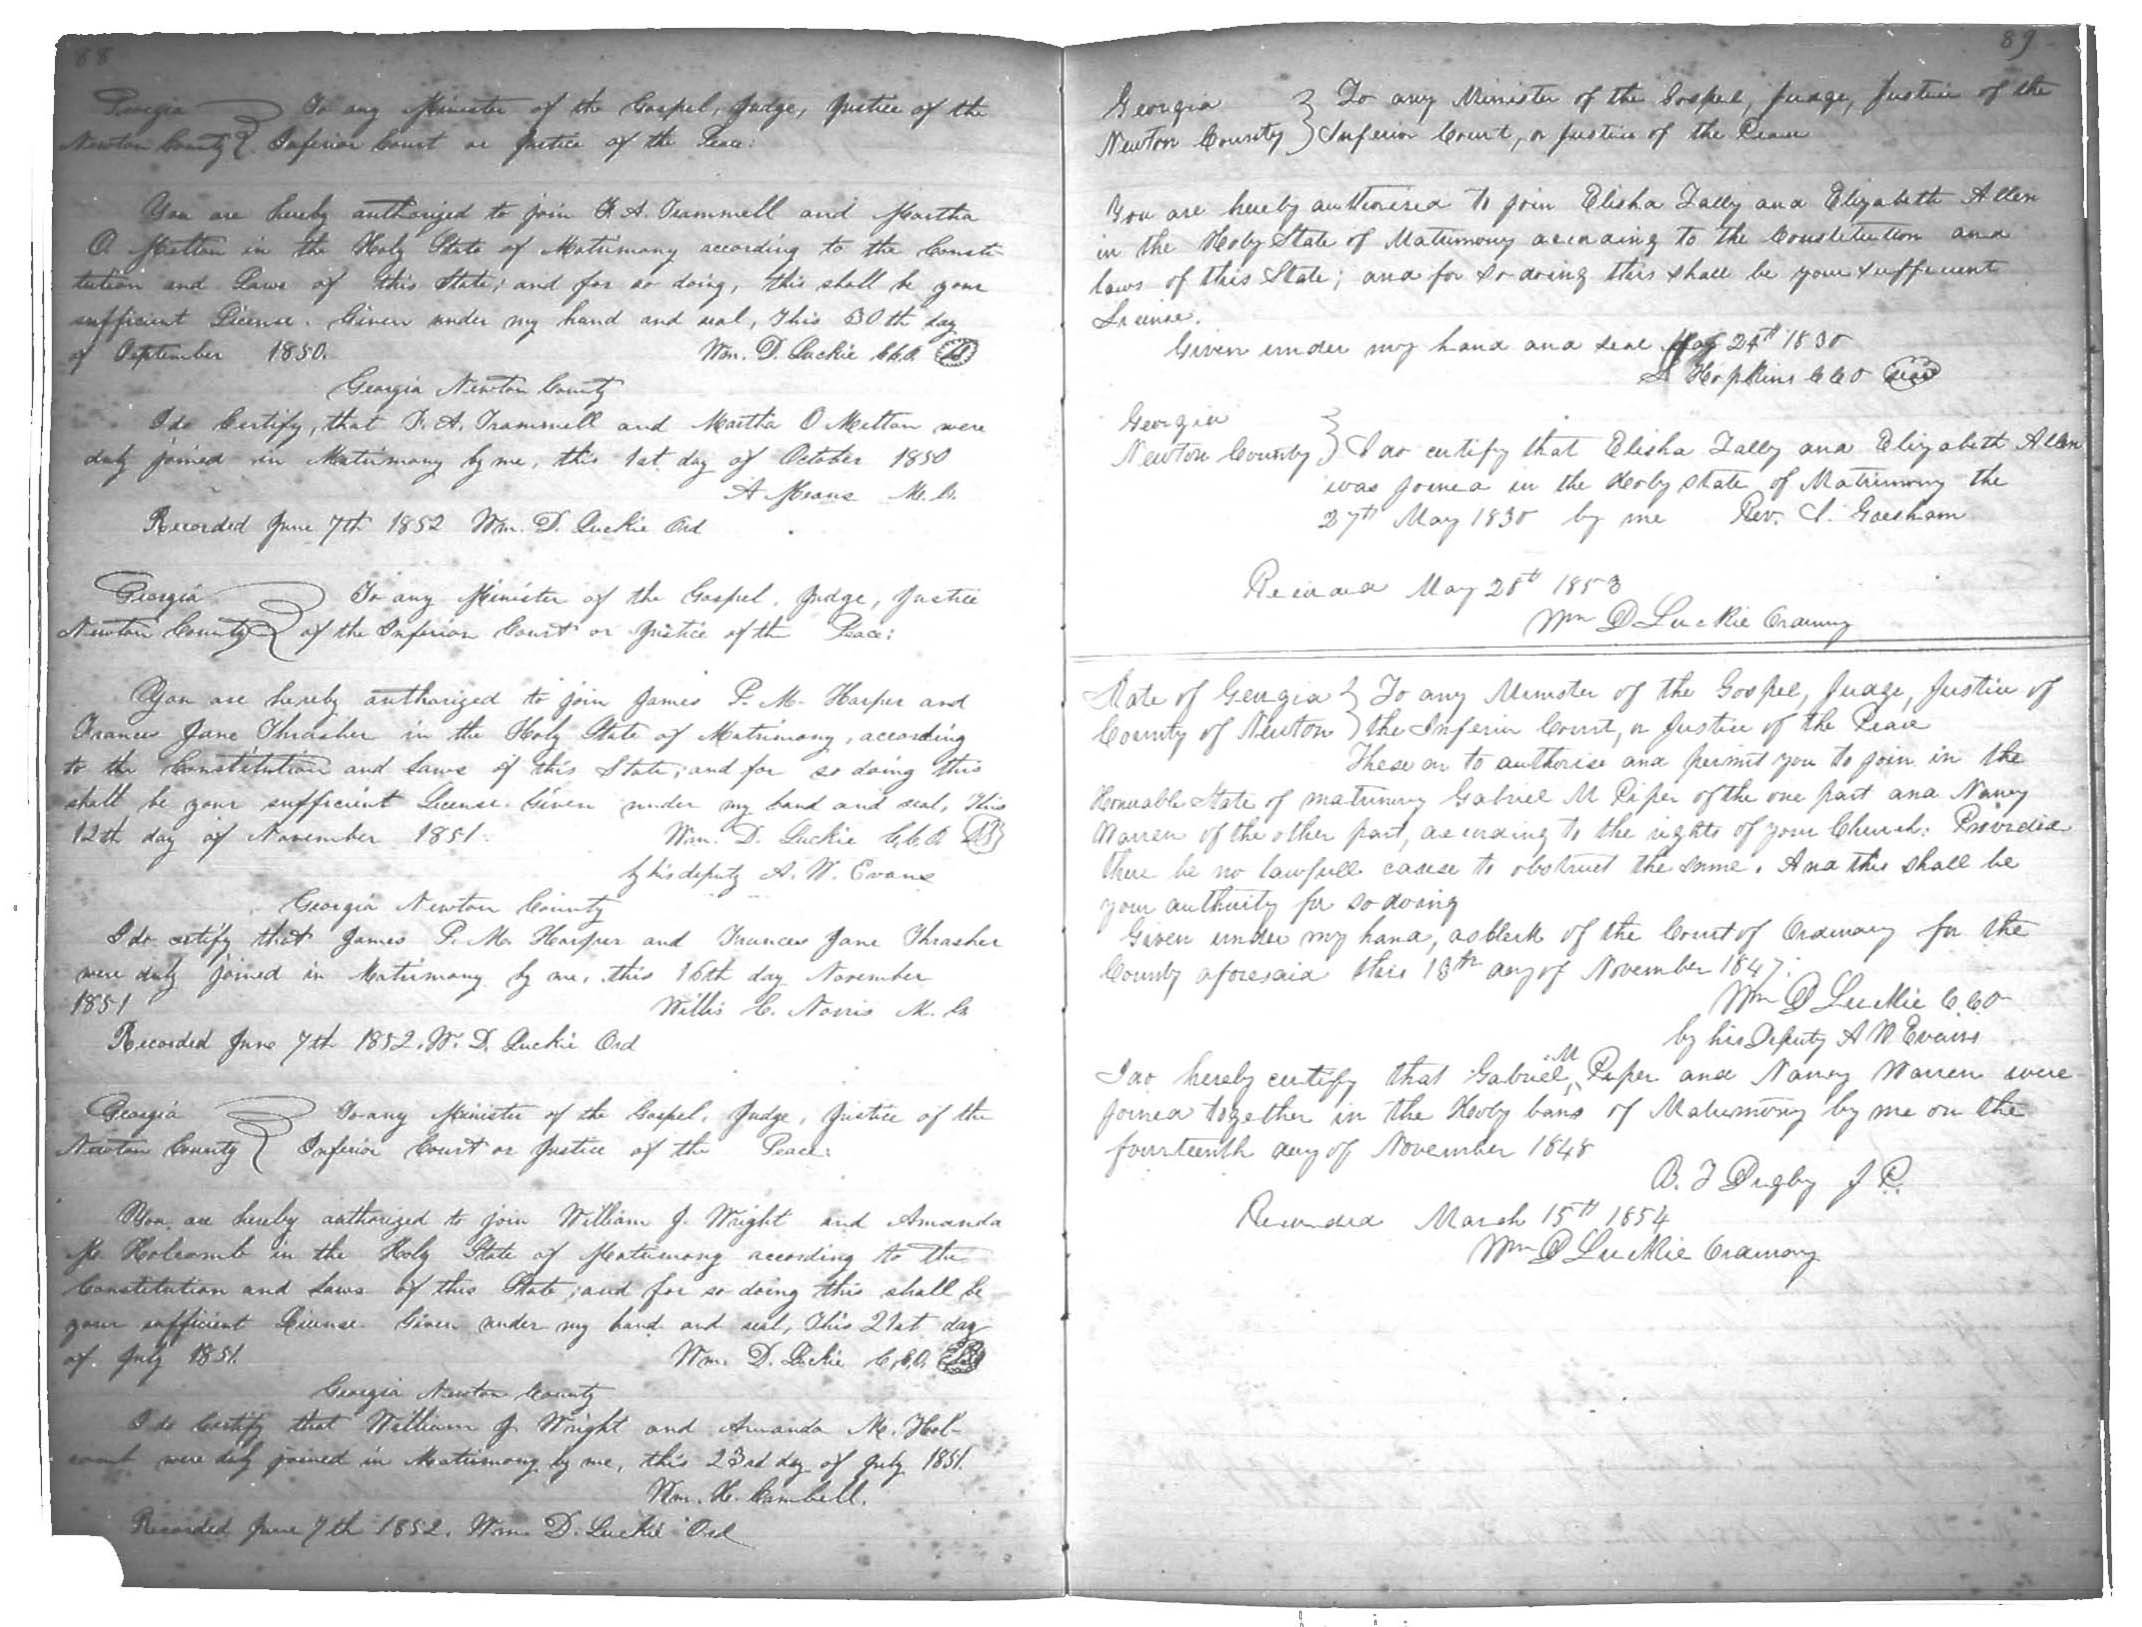 88
Georgia To any Minister of the Gospel, Judge, Justice of the
Newton County Inferior Court or Justice of the Peace:
You are hereby authorized to join F. A. Trammell and Martha
O. Melton in the Holy State of Matrimony according to the Consti-
tution and Laws of this State; and for so doing, this shall be your
sufficient License. Given under my hand and seal, This 30th day
of September 1850. Wm. D. Luckie C.C.O. LS
Georgia Newton County
I do Certify, that F. A. Trammell and Martha O Melton were
duly joined in Matrimony by me, this 1st day of October 1850
A Means M. G.
Recorded June 7th 1852 Wm. D. Luckie Ord
Georgia To any Minister of the Gospel, Judge, Justice
Newton County of the Inferior Court or Justice of the Peace:
You are hereby authorized to join James P. M. Harper and
Frances Jane Thrasher in the Holy State of Matrimony, according
to the Constitution and Laws of this State; and for so doing this
shall be your sufficient License. Given under my hand and seal, This
12th day of November 1851. Wm. D. Luckie C.C.O. LS
by his deputy A. W. Evans
Georgia Newton County
I do certify that James P. M. Harper and Frances Jane Thrasher
were duly joined in Matrimony by me, this 16th day November
1851 Willis C. Norris M. G.
Recorded June 7th 1852. W. D. Luckie Ord
Georgia To any Minister of the Gospel, Judge, Justice of the
Newton County Inferior Court or Justice of the Peace:
You are hereby authorized to join William J. Wright and Amanda
M. Holcomb in the Holy State of Matrimony according to the
Constitution and Laws of this State; and for so doing this shall be
your sufficient License. Given under my hand and seal, This 21st day
of July 1851. Wm. D. Luckie C.C.O. LS
Georgia Newton County
I do Certify that William J. Wright and Amanda M. Hol-
comb were duly joined in Matrimony by me, this 23rd day of July 1851.
Wm. H. Cambell.
Recorded June 7th 1852. Wm. D. Luckie Ord
89
Georgia To any Minister of the Gospel, Judge, Justice of the
Newton County Inferior Court, or Justice of the Peace
You are hereby authorised to join Elisha Tally and Elizabeth Allen
in the Holy State of Matrimony according to the Constitution and
laws of this State; and for so doing this shall be your sufficient
License.
Given under my hand and seal May 24th 1830
Hopkins C C O seal
Georgia
Newton County I do certify that Elisha Tally and Elizabeth Allen
was joined in the Holy state of Matrimony the
27th May 1830 by me Rev. Goesham
Recorded May 28th 1853
Wm D Luckie Ordinary
State of Georgia To any Minister of the Gospel, Judge, Justice of
County of Newton the Inferior Court, or Justice of the Peace
These are to authorise and permit you to join in the
Honorable State of matrimony Gabriel M Piper of the one part and Nancy
Warren of the other part, according to the rights of your Church: Provided
there be no lawfull cause to obstruct the same. And this shall be
your authority for so doing
Given under my hand, as Clerk of the Court of Ordinary for the
County aforesaid this 13th day of November 1847.
Wm D Luckie C.C.O
by his Deputy A W Evans
I do hereby certify that Gabriel M Piper and Nancy Warren were
joined together in the Holy bans of Matrimony by me on the
fourteenth day of November 1848
B. F Digby J P.
Recorded March 15th 1854
Wm D Luckie Ordinary